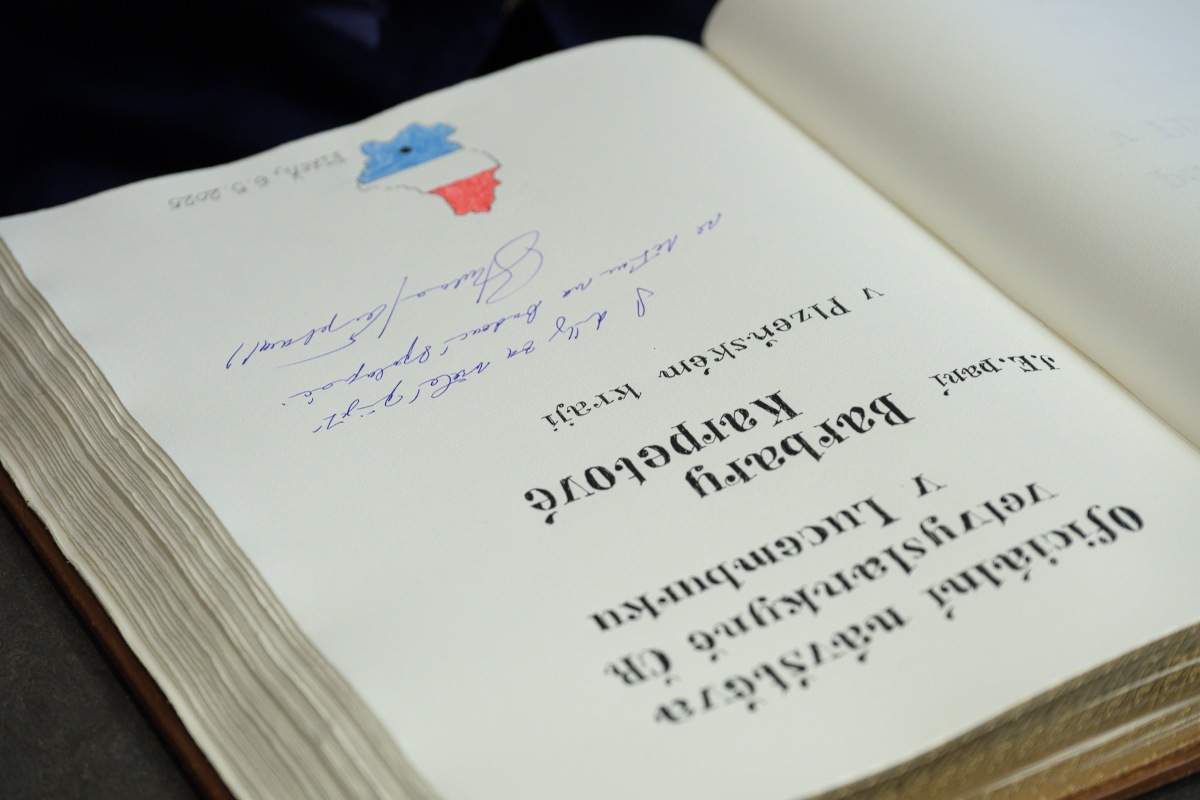 Oficiální návštěva
velvyslankyně ČR
v Lucembursku
J.E. paní
Barbary
Karpetové
v Plzeňském kraji
S díky za vřelé přijetí
na budoucí spolupráci
Plzeň, 6.5.2025